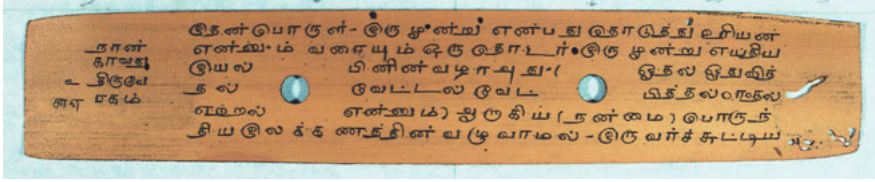 நான்
காவது
திருவே
ரகம்
இதன்பொருள்- இருமூன்று என்பது தொடுத்து உரியன
என்னும் வரையும் ஒரு தொடர்• இருமூன்று எய்திய
இயல் பினின் வழாஅது•( ஓதல் ஓதுவித்
தல் வேட்டல் வேட் பித்தல் ஈதல்
ஏற்றல் என்னும்) ஆருகிய (நன்மை) பொருந்
திய இலக்கணத்தின் வழுவாமல்- இருவர்ச்சுட்டிய